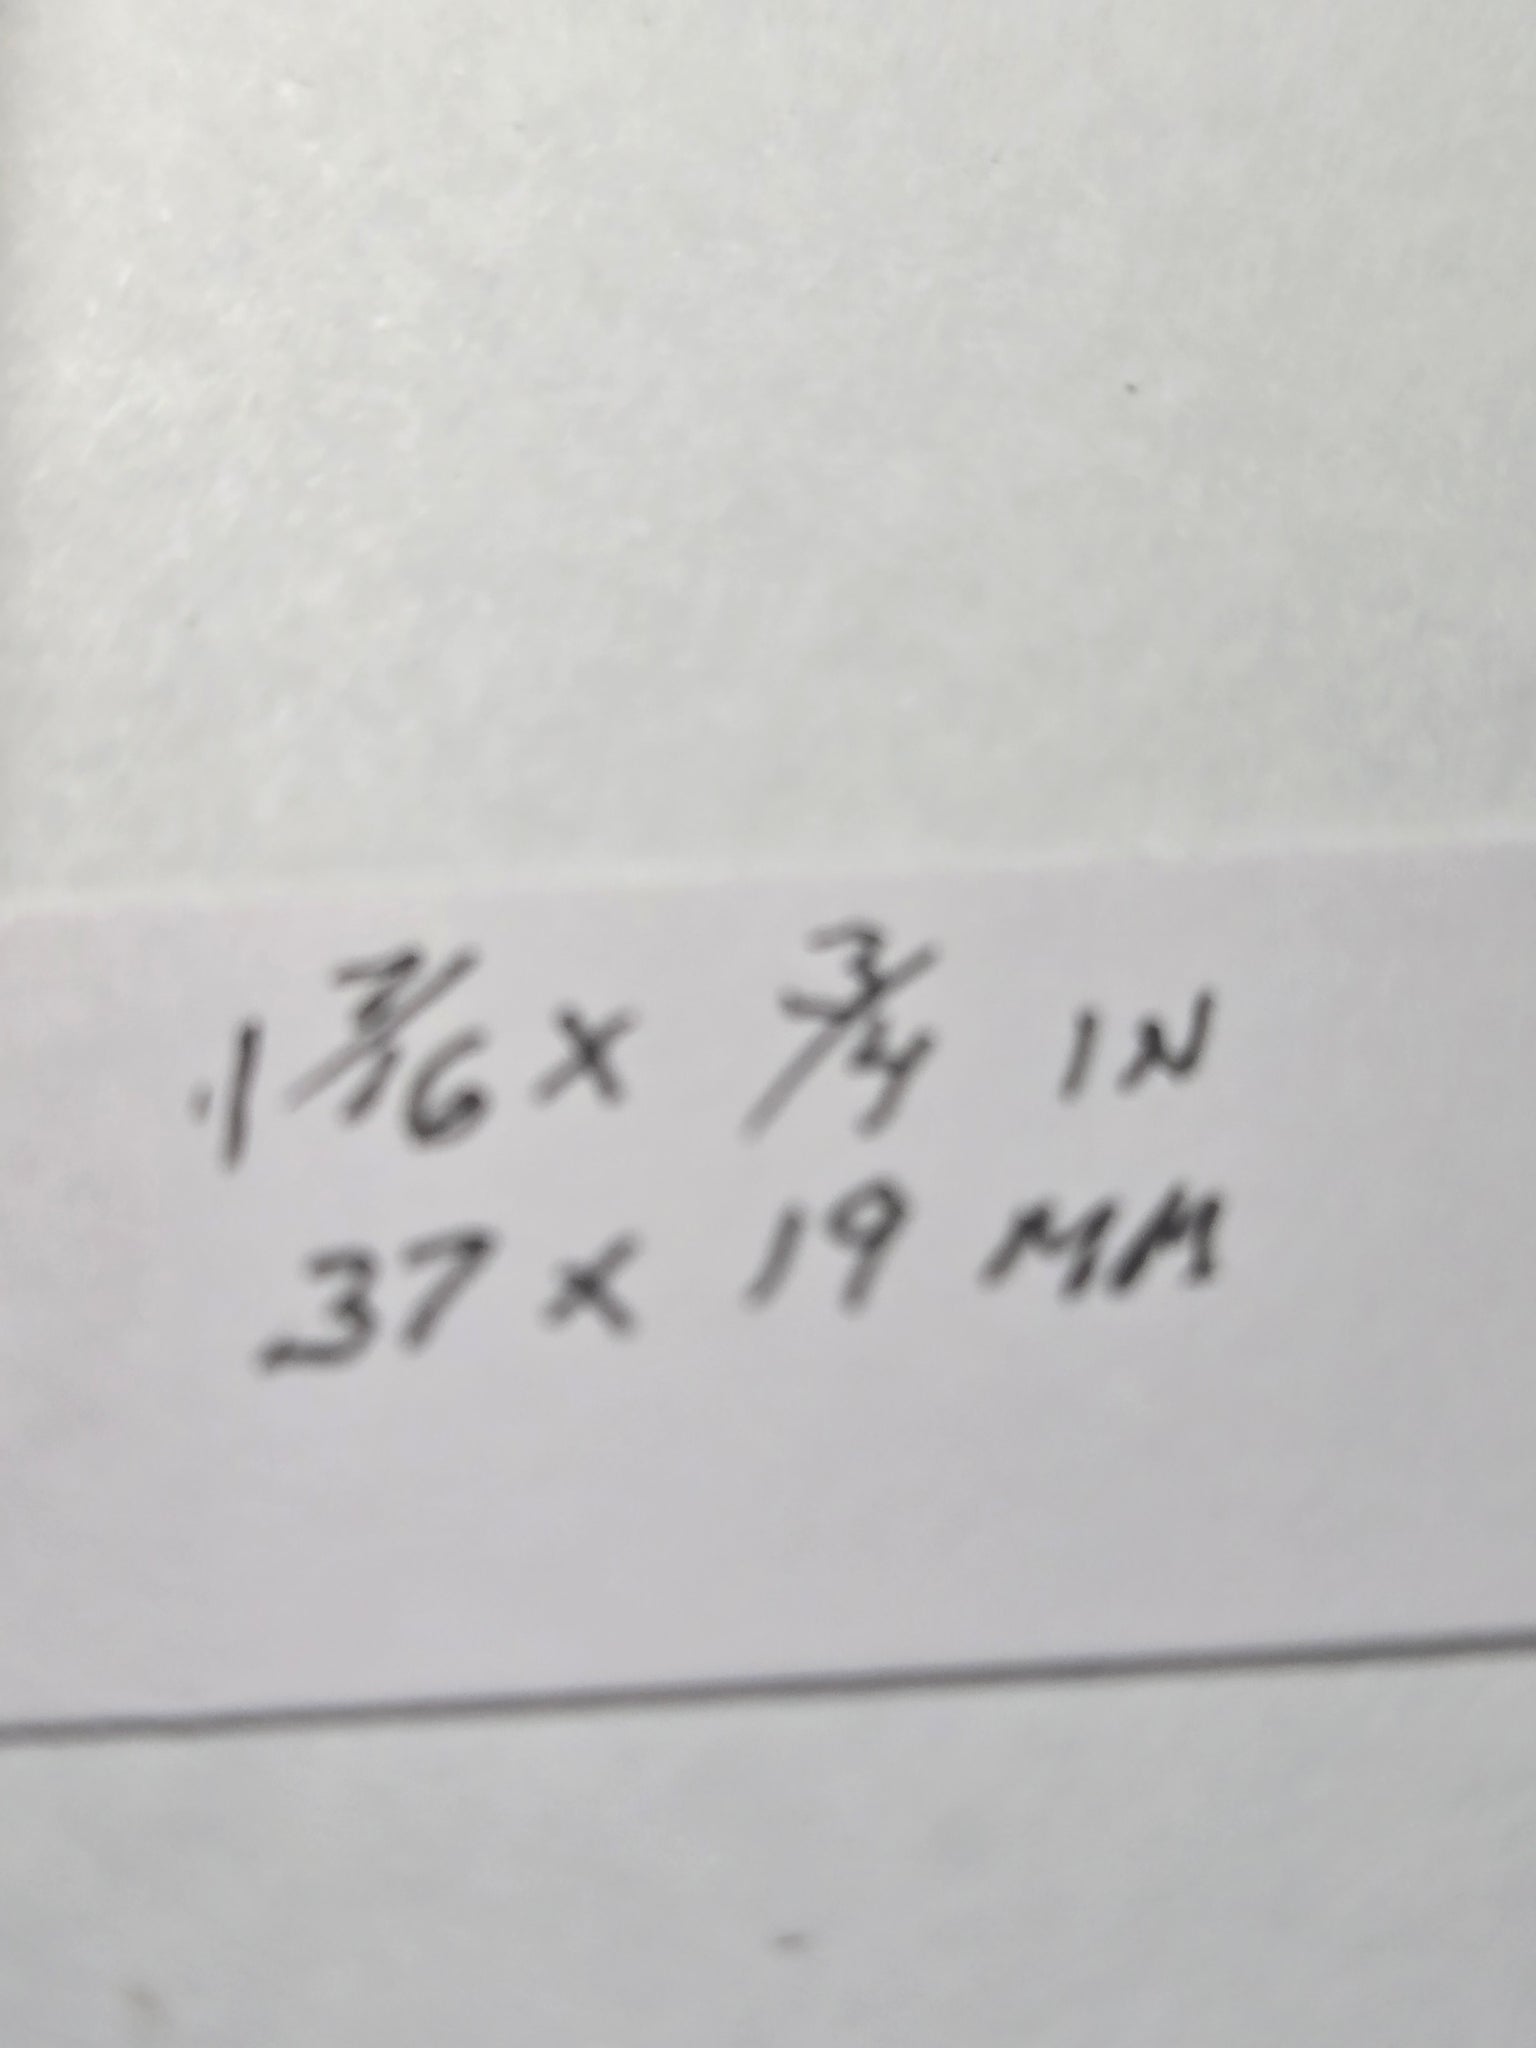 1 7/16 X 3/4 IN
37 X 19 MM